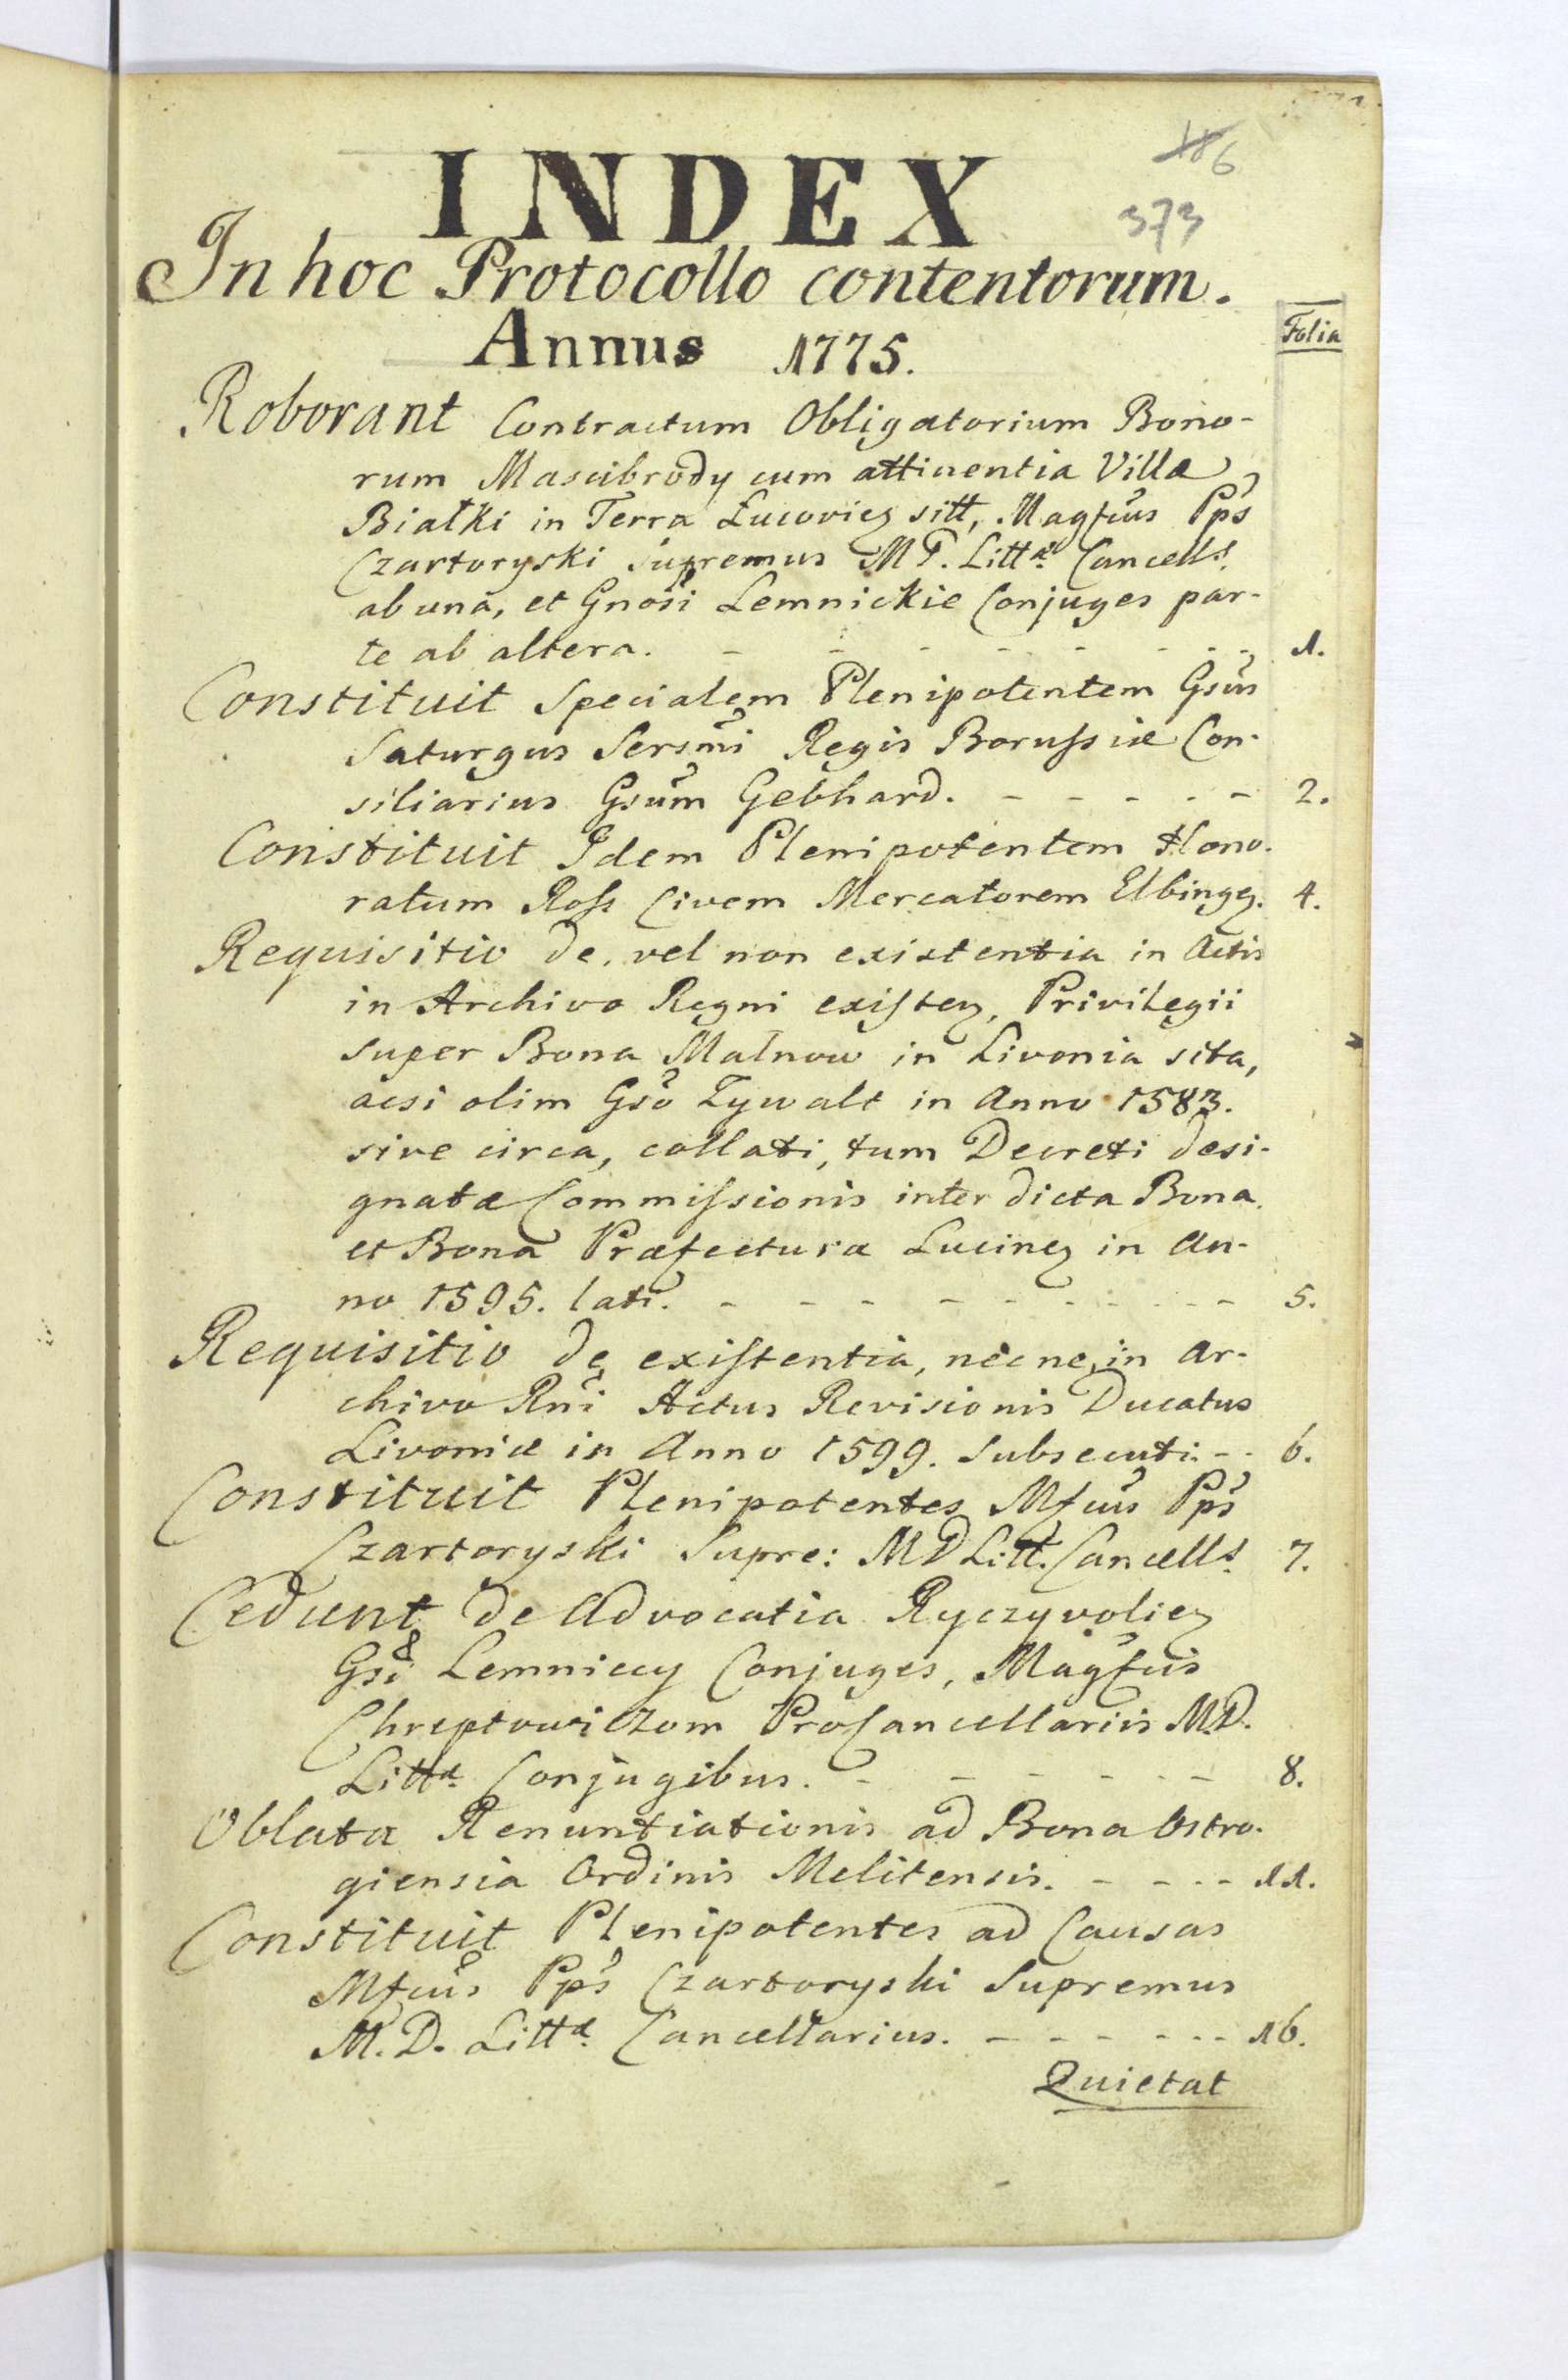 186
373
INDEX
In hoc Protocollo contentorum.
Annus 1775.
Folia
Roborant Contractum Obligatorium Bono-
rum Mascibrody cum attinentia Villa
Białki in Terra Łucovien sitt, Magfcus Pps
Czartoryski Supremus M P. Littæ Cancells
ab una, et Gnosi Lemnickie Conjuges par-
te ab altera. - - - - - - - - 1.
Constituit Specialem Plenipotentem Gsus
Saturgus Sersmi Regis Borussiæ Con-
siliarius Gsum Gebhard. - - - - - 2.
Constituit Idem Plenipotentem Hono-
ratum Ross Civem Mercatorem Elbingen. 4.
Requisitio de, vel non existentia in Actis
in Archivo Regni existen, Privilegii
super Bona Malnow in Livonia sita,
acsi olim Gso Tywalt in Anno 1583.
sive circa, collati, tum Decreti desi-
gnatæ Commissionis inter dicta Bona
et Bona Præfectura Lucinen in An-
no 1595. lati. - - - - - - - - 5.
Requisitio de existentia, nec ne, in Ar-
chivo Rni Actus Revisionis Ducatus
Livoniæ in Anno 1599. subsecuti. - - 6.
Constituit Plenipotentes Mfcus Pps
Czartoryski Supre: M D Litt. Cancells 7.
Cedunt de Advocatia Ryczyvolien
Gsi Lemniccy Conjuges, Magfcis
Chreptowiczom ProCancellariis M.D.
Littæ Conjugibus. - - - - - - 8.
Oblata Renuntiationis ad Bona Ostro-
giensia Ordinis Melitensis. - - - - 11.
Constituit Plenipotentes ad Causas
Mfcus Pps Czartoryski Supremus
M. D. Littæ Cancellarius. - - - - - - 16.
Quietat